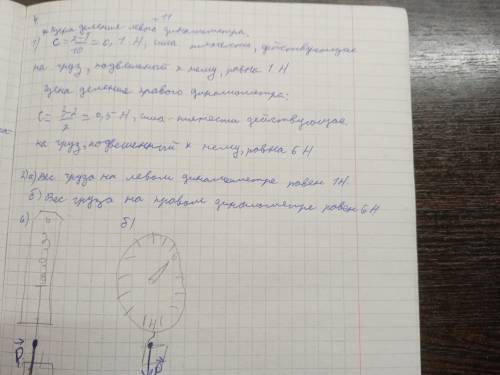 Цена деления левого динамометра.
1) C = 2-1/10 = 0,1 Н, сила тяжести, действующая
на груз, подвешенный к нему, равна 1 Н
Цена деления правого динамометра:
C = 2-1/2 = 0,5 Н, сила тяжести действующая
на груз, подвешенный к нему, равна 6 Н
2) а) Вес груза на левом динамометре равен 1Н.
б) Вес груза на правом динамометре равен 6 Н
а) б)
Н
P P